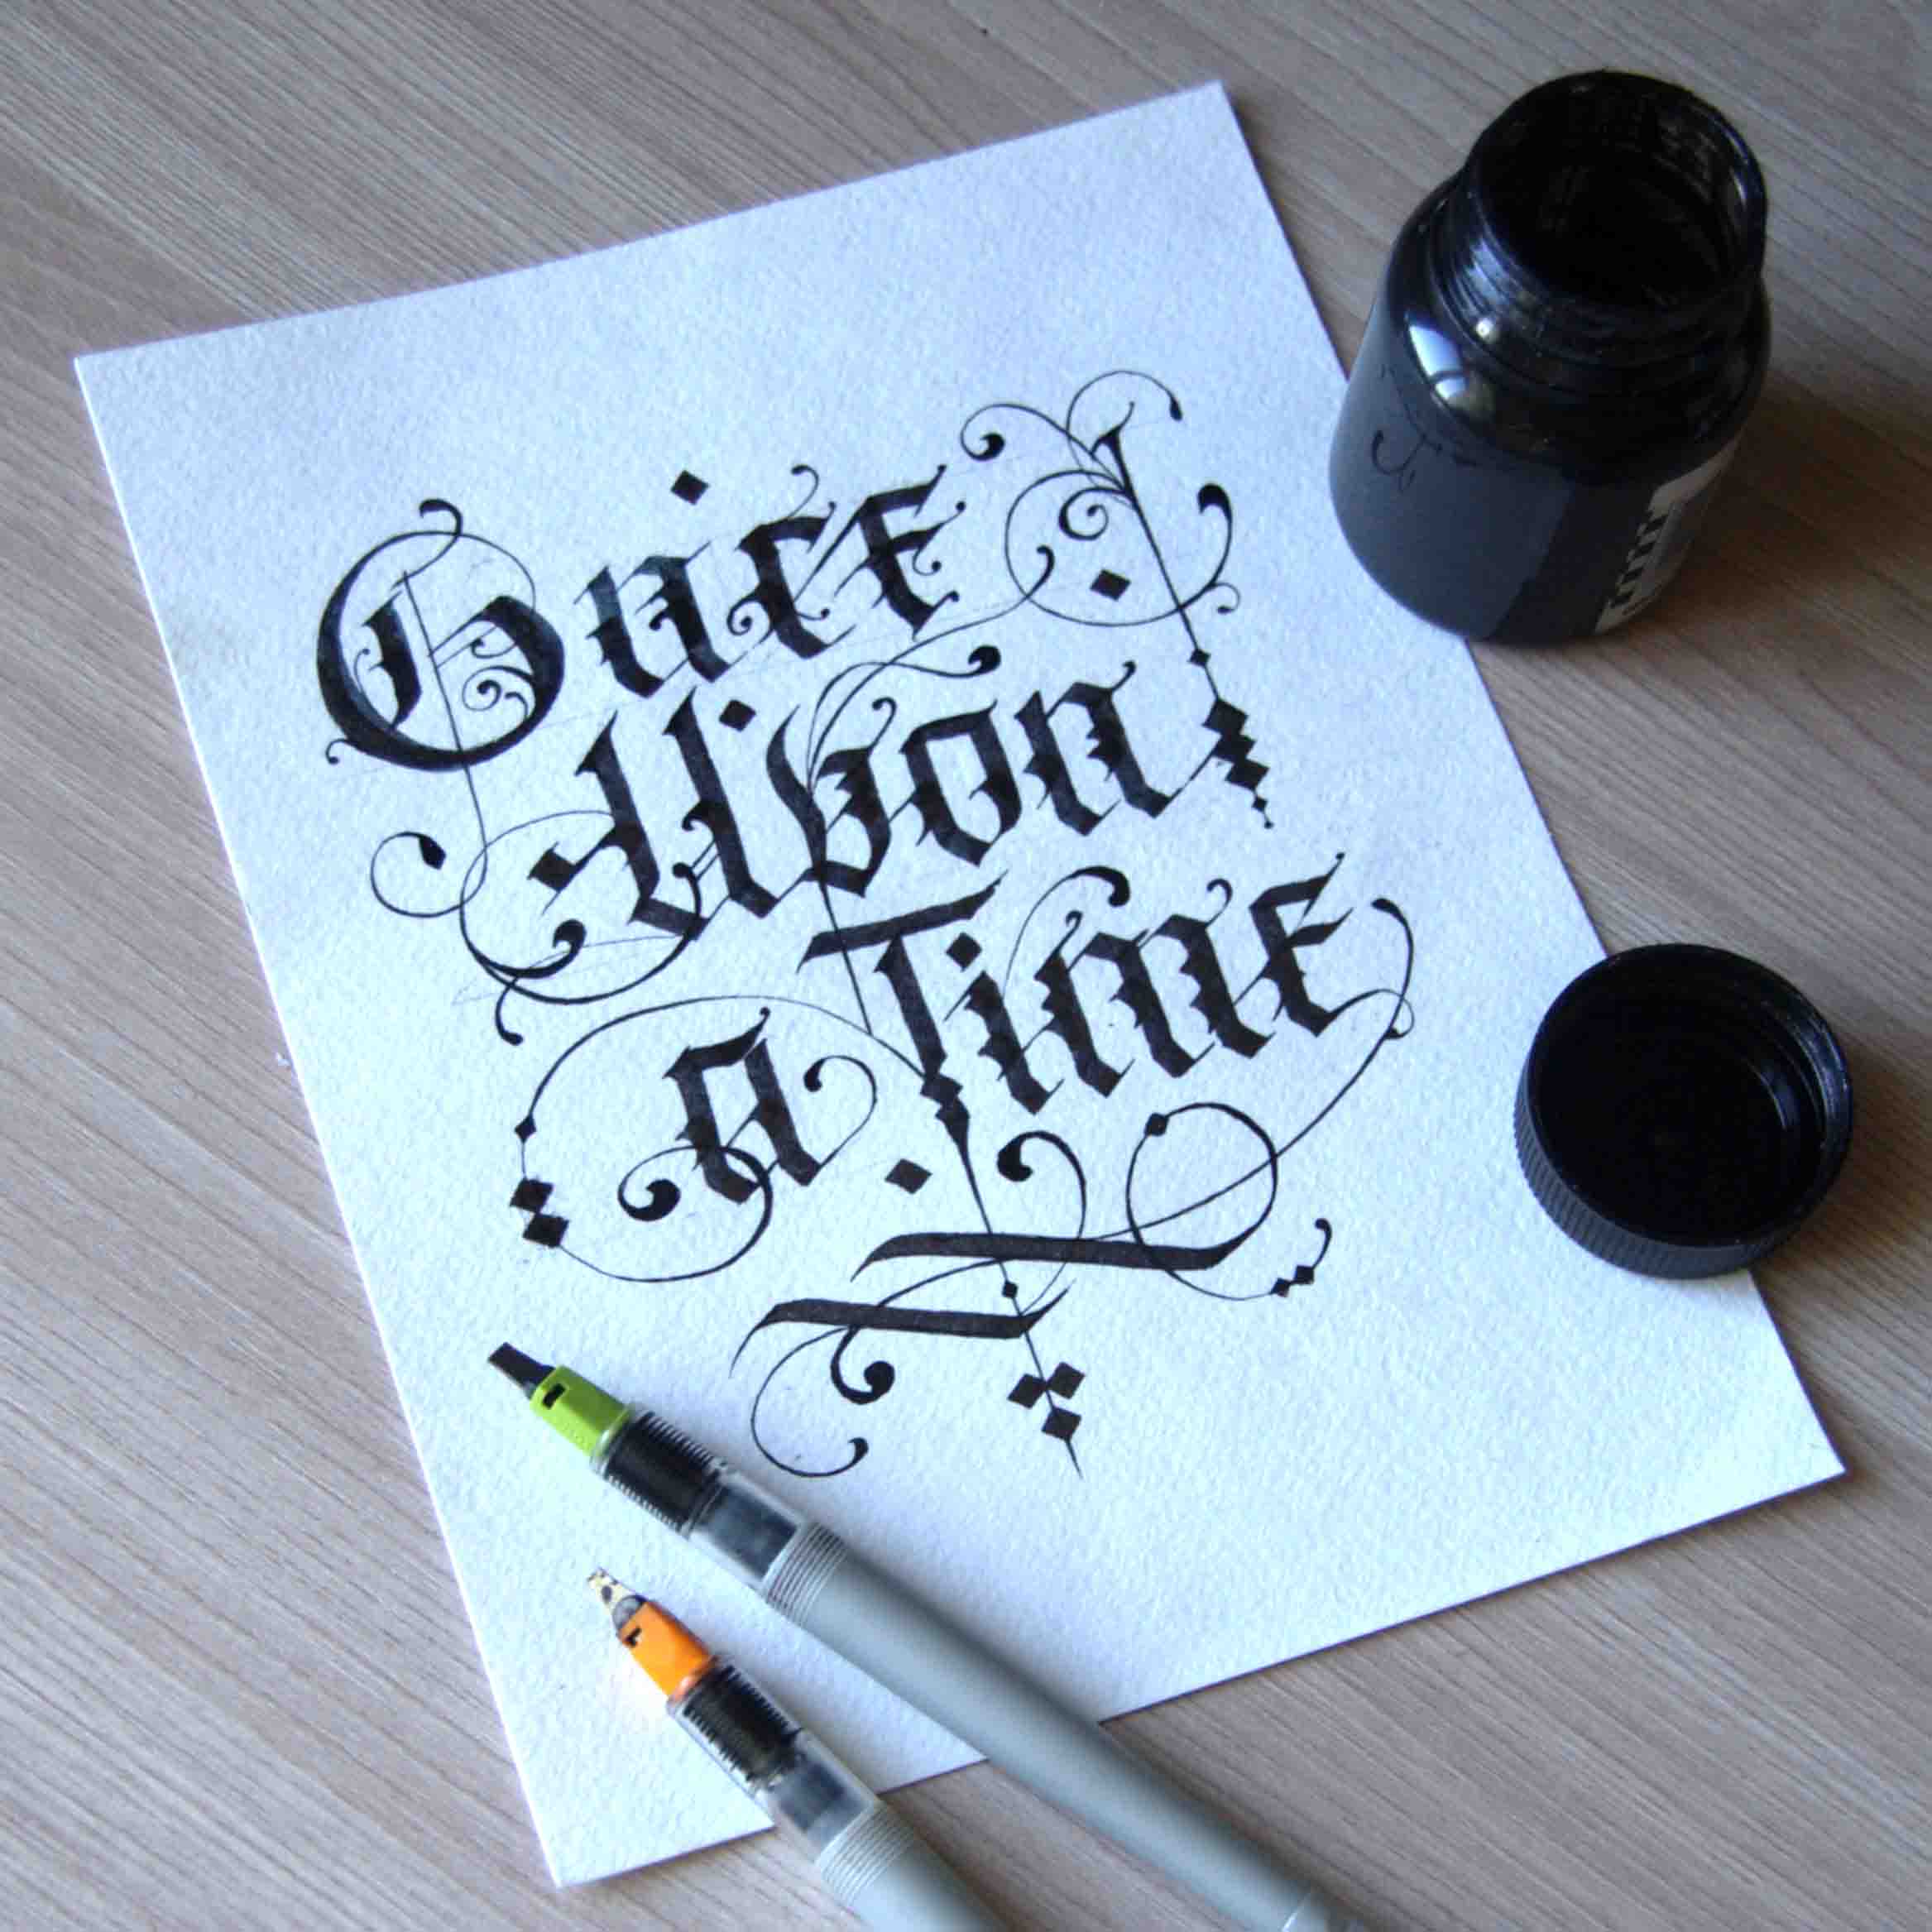 Once
Upon
a Time